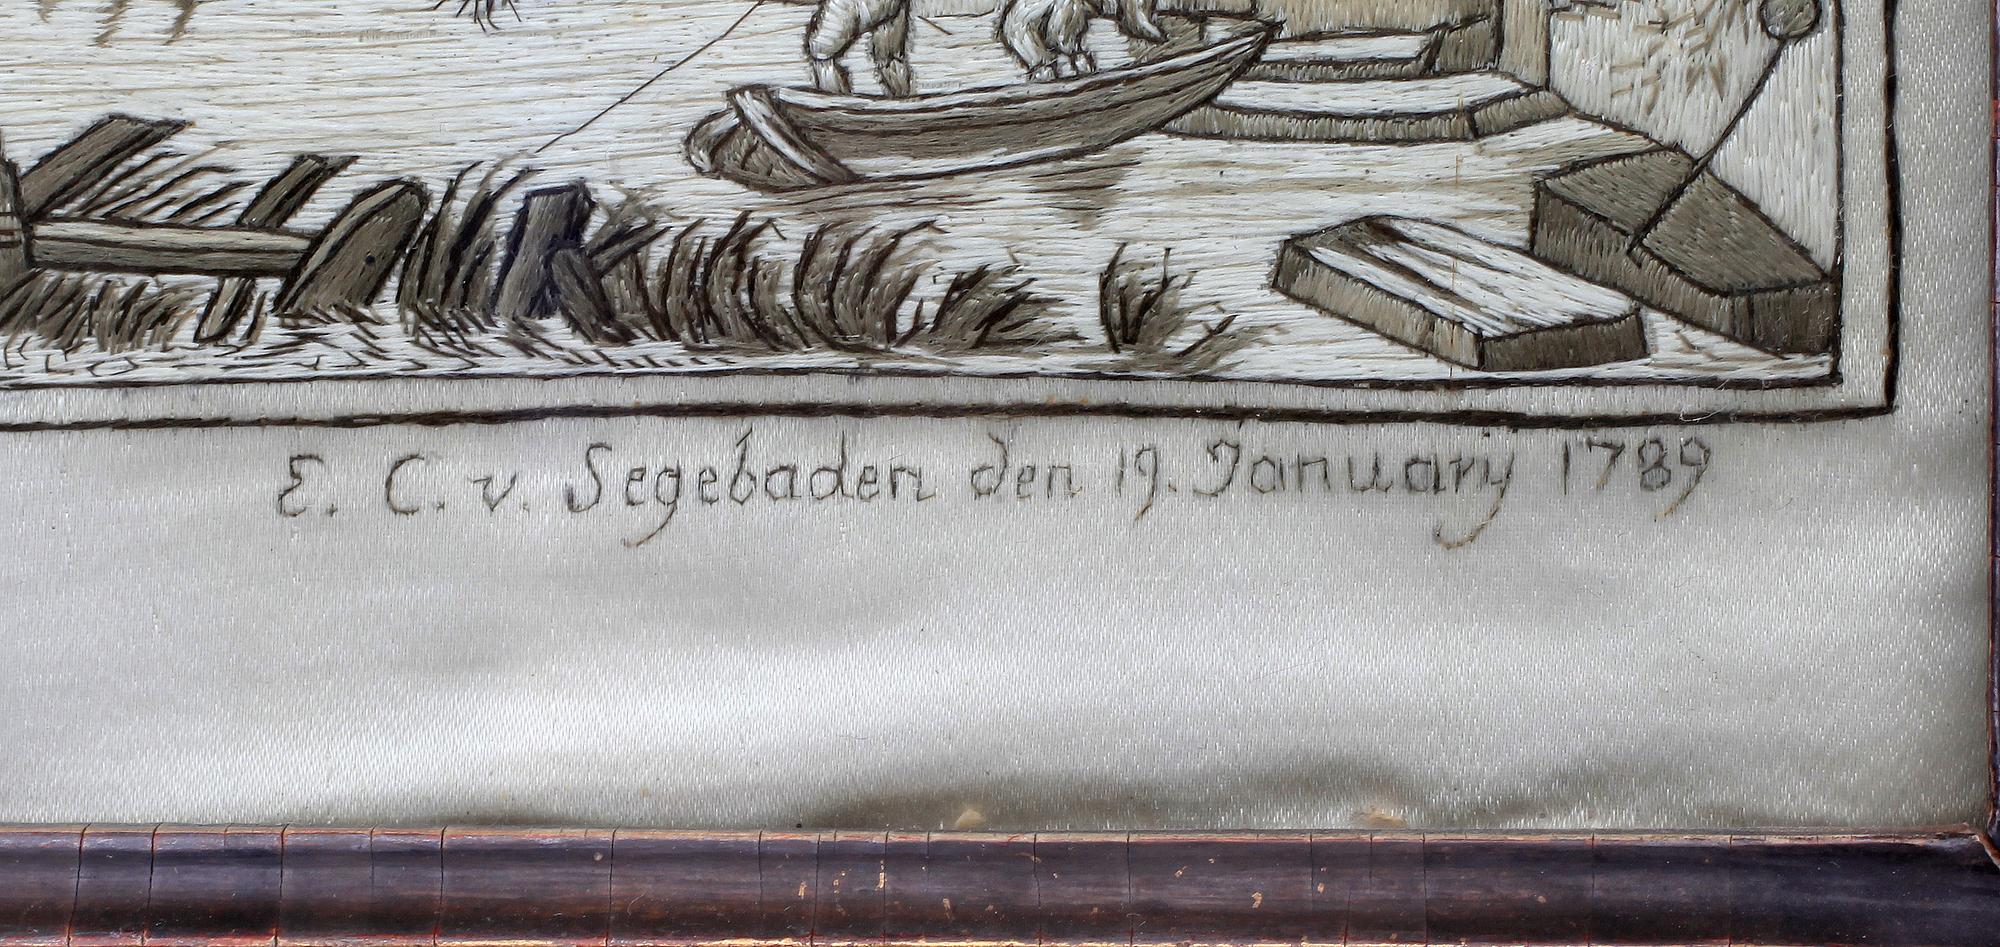 E. C. v. Segebaden den 19. January 1789